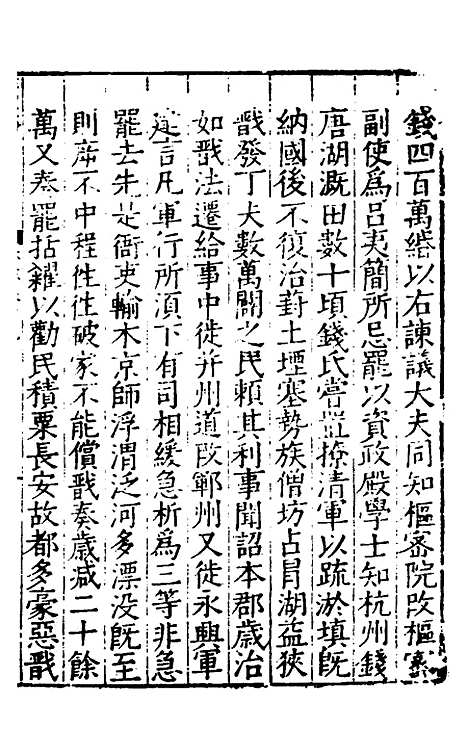 錢四百萬緡以右諫議大夫同知樞密院改樞密
副使為呂夷簡所忌罷以資政殿學士知杭州錢
唐湖溉田數十頃錢氏嘗置撩清軍以疏淤填旣
納國後不復治葑土堙塞勢族僧坊占冐湖益狹
戩發丁夫數萬闢之民賴其利事聞詔本郡歲治
如戩法遷給事中徙并州道改鄆州又徙永興軍
建言凡軍行所須下有司相緩急析為三等非急
罷去先是衙吏輸木京師浮渭泛河多漂没旣至
則斥不中程往往破家不能償戩奏歲减二十餘
萬又奏罷括糴以勸民積粟長安故都多豪惡戩